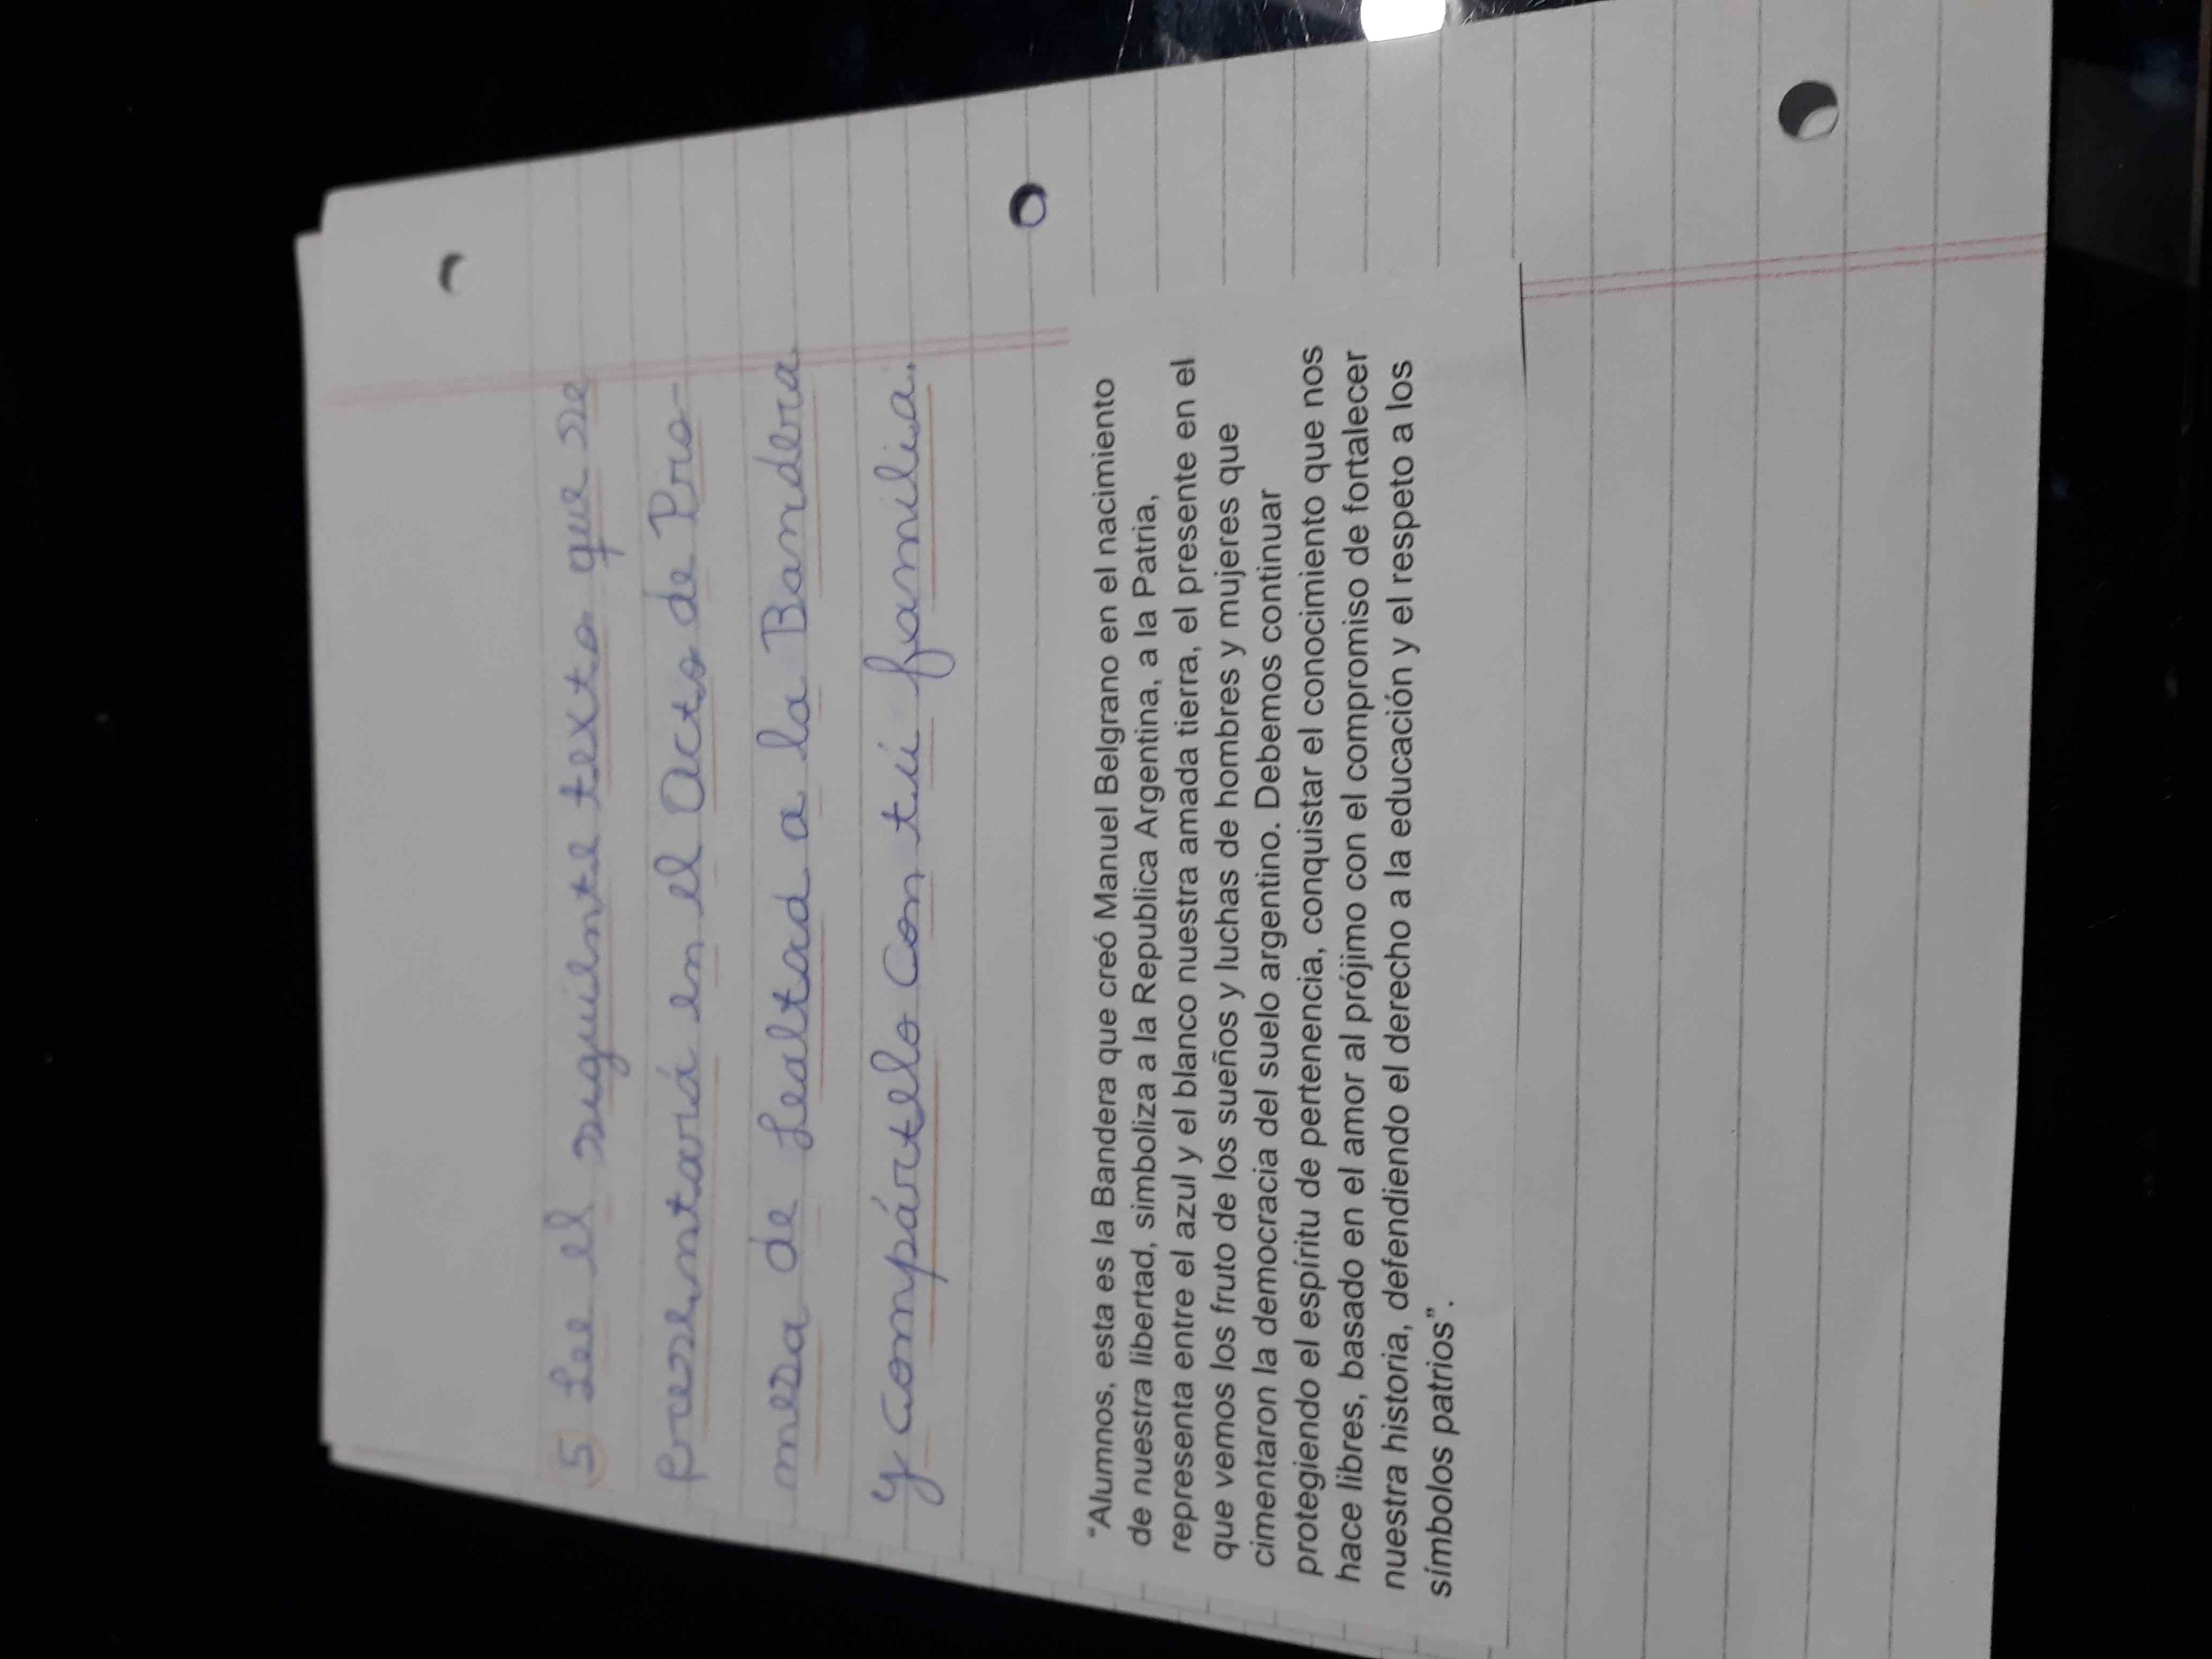 5 Lee el siguiente texto que se
presentará en el Acto de Pro-
mesa de Lealtad a la Bandera
y compártelo con tú familia.
"Alumnos, esta es la Bandera que creó Manuel Belgrano en el nacimiento
de nuestra libertad, simboliza a la Republica Argentina, a la Patria,
representa entre el azul y el blanco nuestra amada tierra, el presente en el
que vemos los fruto de los sueños y luchas de hombres y mujeres que
cimentaron la democracia del suelo argentino. Debemos continuar
protegiendo el espíritu de pertenencia, conquistar el conocimiento que nos
hace libres, basado en el amor al prójimo con el compromiso de fortalecer
nuestra historia, defendiendo el derecho a la educación y el respeto a los
símbolos patrios".